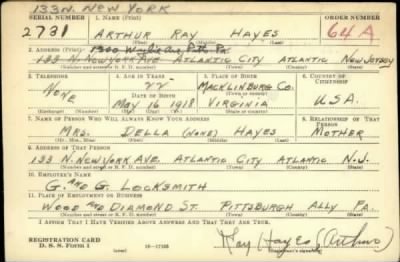 133 N. NEW YORK
SERIAL NUMBER 1. NAME (Print) ORDER NUMBER
2731 ARTHUR RAY HAYES 64A
(First) (Middle) (Last)
2. ADDRESS (Print) 1300 Wylie Ave. Pitts. Pa
133 N. NEW YORK AVE ATLANTIC CITY ATLANTIC NEW JERSEY
(Number and street or R. F. D. number) (Town) (County) (State)
3. TELEPHONE 4. AGE IN YEARS 5. PLACE OF BIRTH 6. COUNTRY OF CITIZENSHIP
NONE 22 MACKLINBURG CO.
DATE OF BIRTH
MAY 16 1918 VIRGINIA U.S.A.
(Exchange) (Number) (Mo.) (Day) (Yr.) (State or country)
7. NAME OF PERSON WHO WILL ALWAYS KNOW YOUR ADDRESS 8. RELATIONSHIP OF THAT PERSON
MRS. DELLA (NONE) HAYES MOTHER
(Mr., Mrs., Miss) (First) (Middle) (Last)
9. ADDRESS OF THAT PERSON
133 N. NEW YORK AVE. ATLANTIC CITY ATLANTIC N.J.
(Number and street or R. F. D. number) (Town) (County) (State)
10. EMPLOYER'S NAME
G. AND G. LOCKSMITH
11. PLACE OF EMPLOYMENT OR BUSINESS
WOOD AND DIAMOND ST. PITTSBURGH ALLY PA.
(Number and street or R. F. D. number) (Town) (County) (State)
I AFFIRM THAT I HAVE VERIFIED ABOVE ANSWERS AND THAT THEY ARE TRUE.
REGISTRATION CARD
D. S. S. FORM 1 (over) 16—17105 Ray Hayes (Arthur)